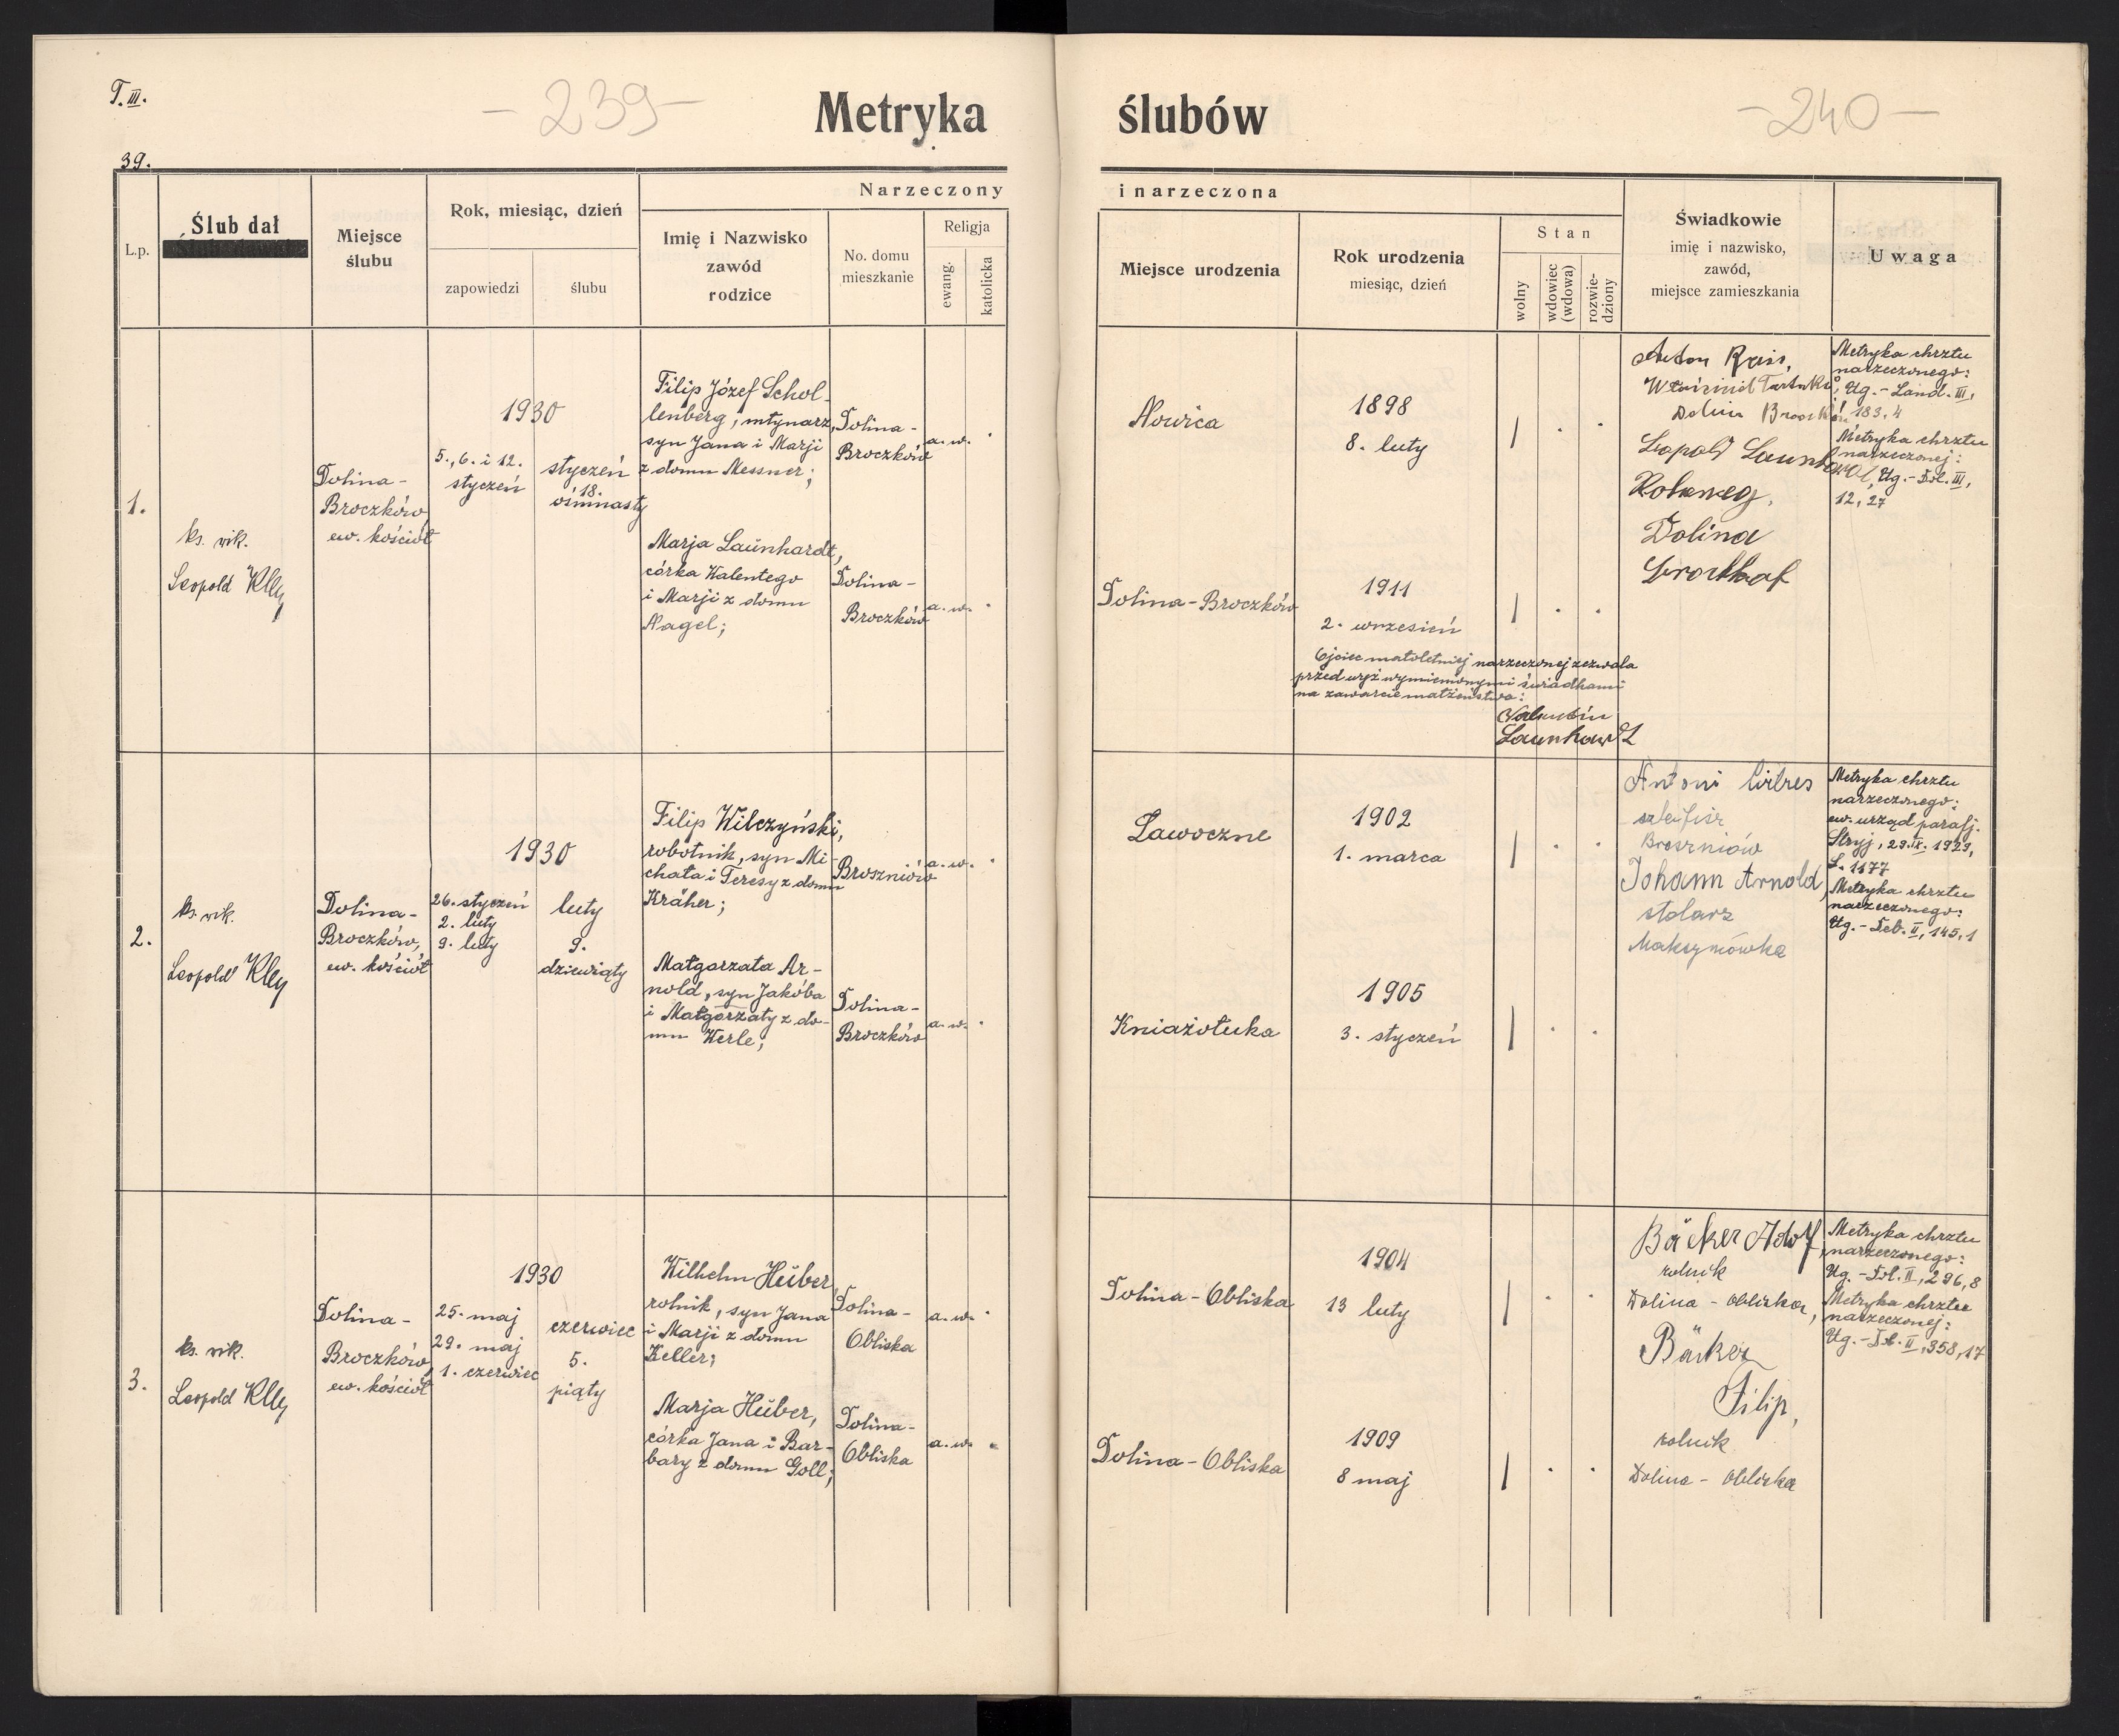 T. III.
- 239 -
Metryka
ślubów
- 240 -
39.
L.p.
Ślub dał
Miejsce
ślubu
Rok, miesiąc, dzień
zapowiedzi
ślubu
Narzeczony
Imię i Nazwisko
zawód
rodzice
No. domu
mieszkanie
Religja
ewang.
katolicka
i narzeczona
Miejsce urodzenia
Rok urodzenia
miesiąc, dzień
Stan
wolny
wdowiec
(wdowa)
rozwie-
dziony
Świadkowie
imię i nazwisko,
zawód,
miejsce zamieszkania
Uwaga
1.
ks. wik.
Leopold Kley
Dolina-
Broczków,
ew. kościół
1930
5., 6. i 12.
styczeń
styczeń
18.
ośmnasty
Filip Józef Schol-
lenberg, młynarz,
syn Jana i Marji
z domu Messner;
Dolina-
Broczków
a. w.
Marja Launhardt,
córka Walentego
i Marji z domu
Nagel;
Dolina-
Broczków
a. w.
Nowica
1898
8. luty
Dolina-Broczków
1911
2. wrzesień
Ojciec małoletniej narzeczonej zezwala
przed wyż wymienionymi świadkami
na zawarcie małżeństwa:
Launhardt
Anton
Dolina
Leopold Launhardt
Dolina
Metryka chrztu
narzeczonego:
Ug.-Land. III,
183, 4
Metryka chrztu
narzeczonej:
Ug.-Dol. III,
12, 27
2.
ks. wik.
Leopold Kley
Dolina-
Broczków,
ew. kościół
1930
26. styczeń
2. luty
9. luty
luty
9.
dziewiąty
Filip Wilczyński,
robotnik, syn Mi-
chała i Teresy z domu
Kräher;
Broszniów
a. w.
Małgorzata Ar-
nold, syn Jakóba
i Małgorzaty z do-
mu Werle;
Dolina-
Broczków
a. w.
Ławoczne
1902
1. marca
Kniażołuka
1905
3. styczeń
Antoni
Broszniów
Johann Arnold,
stolarz
Maksymówka
Metryka chrztu
narzeczonego:
ew. urząd parafj.
Stryj, 29. IX. 1929,
L. 1177
Metryka chrztu
narzeczonego:
Ug.-Feb. II, 145, 1
3.
ks. wik.
Leopold Kley
Dolina-
Broczków,
ew. kościół
1930
25. maj
29. maj
1. czerwiec
czerwiec
5.
piąty
Wilhelm Hüber,
rolnik, syn Jana
i Marji z domu
Keller;
Dolina-
Obliska
a. w.
Marja Hüber,
córka Jana i Bar-
bary z domu Goll;
Dolina-
Obliska
a. w.
Dolina-Obliska
1904
13 luty
Dolina-Obliska
1909
8 maj
Bäcker Adolf,
rolnik
Dolina - Obliska,
Bäcker
Filip,
rolnik
Dolina - Obliska
Metryka chrztu
narzeczonego:
Ug.-Dol. II, 296, 8
Metryka chrztu
narzeczonej:
Ug.-Dol. II, 358, 17